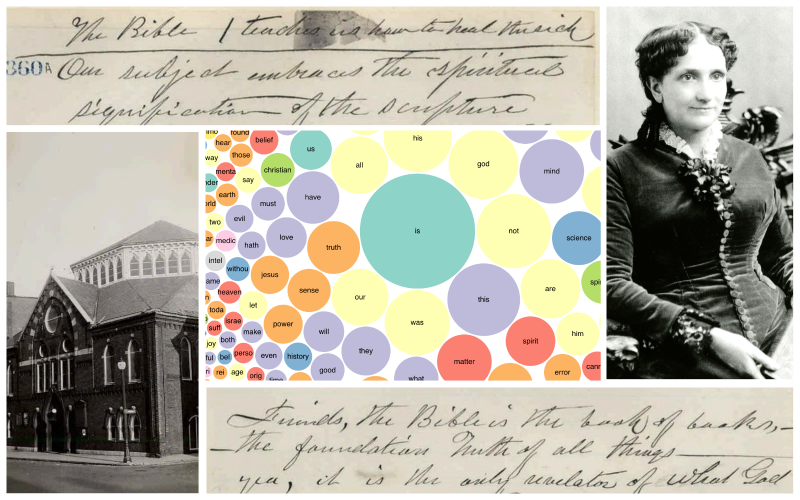 The Bible / teaches is how to heal the sick
360A Our subject embraces the spiritual
signification of the scripture
his
round
hear
belief
us
all
god
way
those
christian
mind
menta
say
have
earth
must
two
evil
is
not
love
science
medic
hath
truth
intel
withou
jesus
sense
this
are
heaven
our
let
toda
power
was
him
israe
suff
make
will
spirit
joy
both
they
perso
even
history
matter
bel
good
rei
age
orig
what
error
Friends, the Bible is the book of books,—
—the foundation Truth of all things—
yea, it is the only revelator of what God